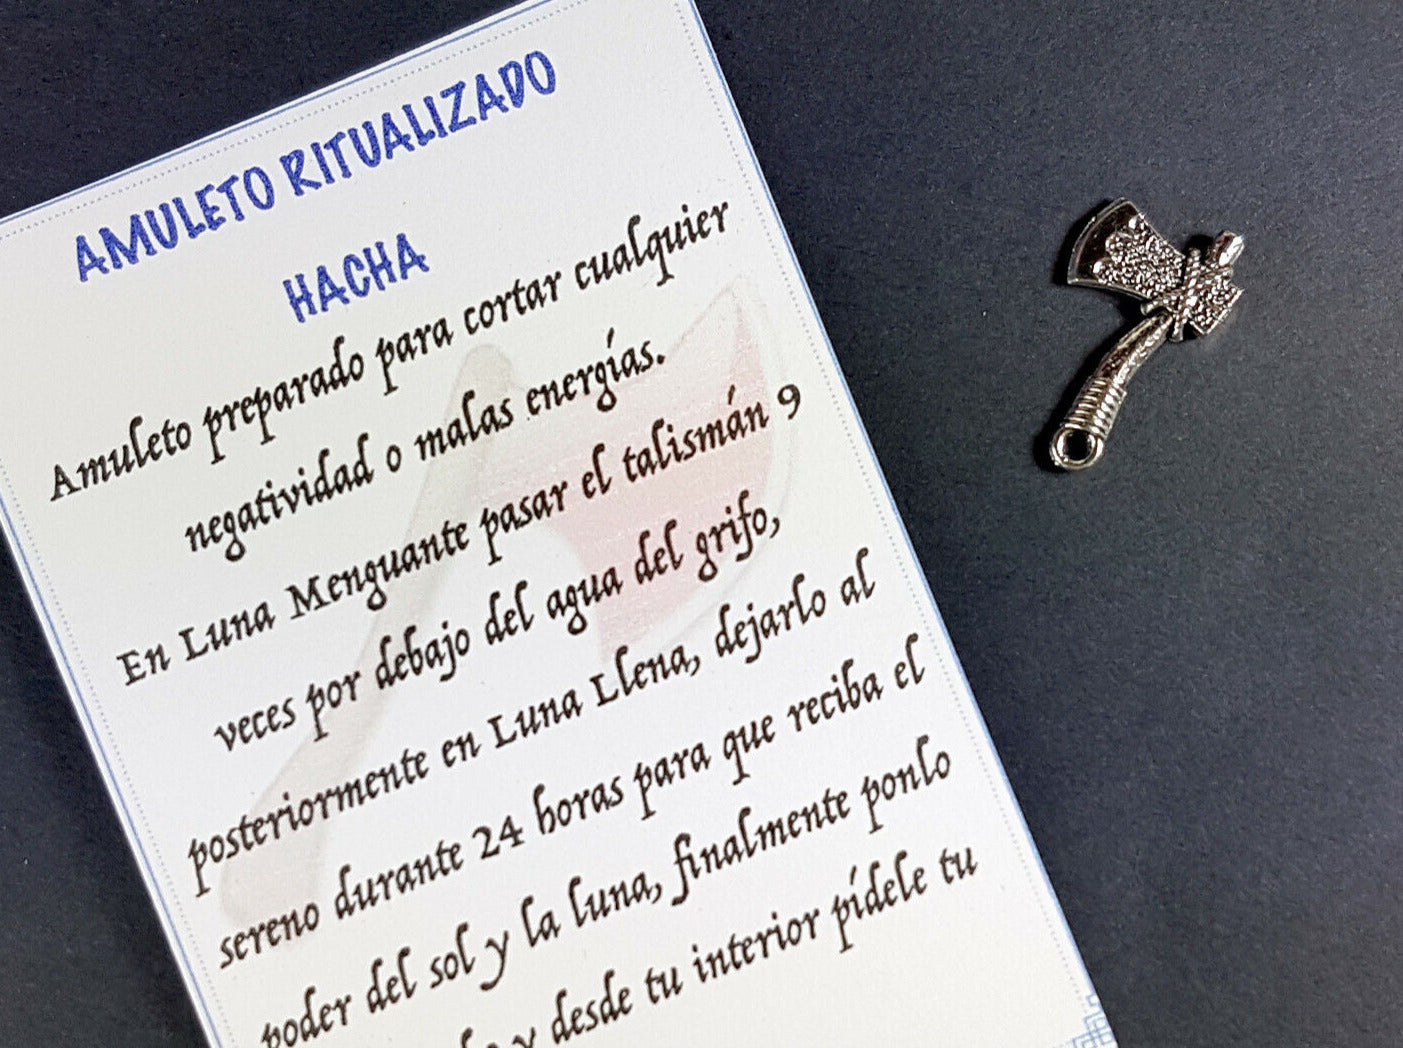 AMULETO RITUALIZADO
HACHA
Amuleto preparado para cortar cualquier
negatividad o malas energías.
En Luna Menguante pasar el talismán 9
veces por debajo del agua del grifo,
posteriormente en Luna Llena, dejarlo al
sereno durante 24 horas para que reciba el
poder del sol y la luna, finalmente ponlo
y desde tu interior pídele tu